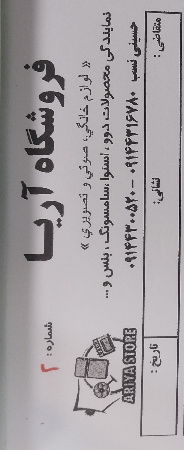 فروشگاه آریا
« لوازم خانگی، صوتی و تصویری »
نمایندگی محصولات دوو، اسنوا، سامسونگ، بنس و...
حسینی نسب ۰۹۱۴۴۳۱۶۷۸۰ - ۰۹۱۴۴۳۰۰۵۲۰
شماره : ۲
ARIYA STORE
تاریخ :
متقاضی :
نشانی: